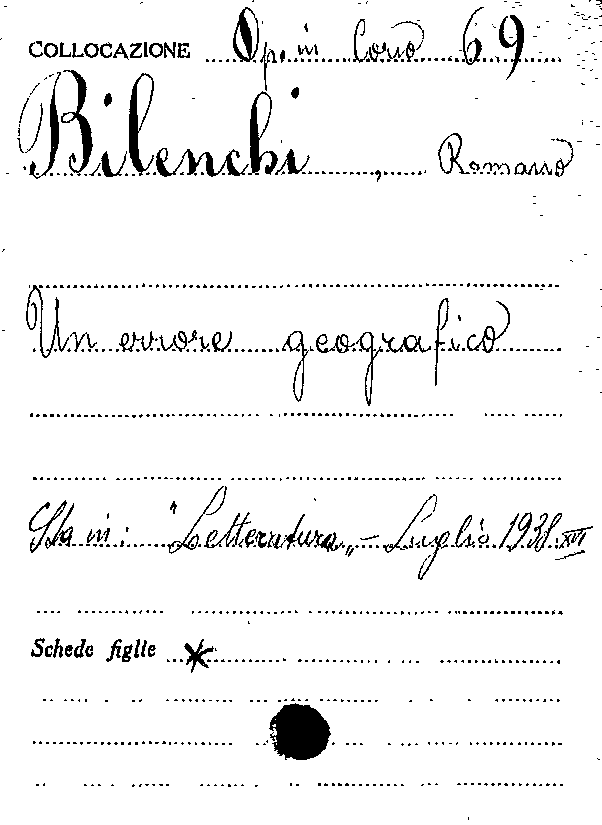 COLLOCAZIONE Op. in Corso 69
Bilenchi, Romano
Un errore geografico
Sta in: "Letteratura" - Luglio 1938. XVI
Schede figlie *